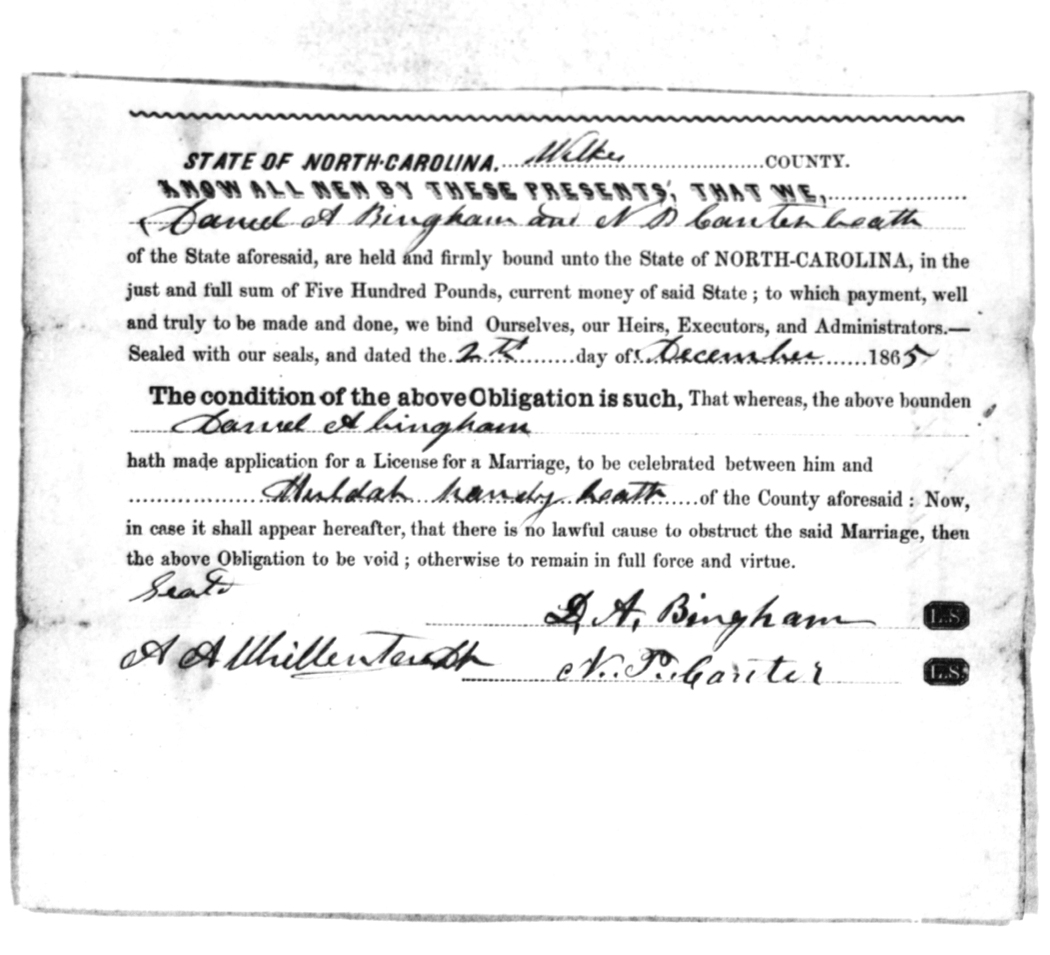 STATE OF NORTH-CAROLINA. Wilkes COUNTY.
KNOW ALL MEN BY THESE PRESENTS, THAT WE,
Daniel A Bingham and N P Canter heath
of the State aforesaid, are held and firmly bound unto the State of NORTH-CAROLINA, in the
just and full sum of Five Hundred Pounds, current money of said State; to which payment, well
and truly to be made and done, we bind Ourselves, our Heirs, Executors, and Administrators.—
Sealed with our seals, and dated the 2th day of December 1865
The condition of the above Obligation is such, That whereas, the above bounden
Daniel A bingham
hath made application for a License for a Marriage, to be celebrated between him and
Huldah heath of the County aforesaid: Now,
in case it shall appear hereafter, that there is no lawful cause to obstruct the said Marriage, then
the above Obligation to be void; otherwise to remain in full force and virtue.
D, A, Bingham L.S.
A A Whittenton
N. P. Canter L.S.